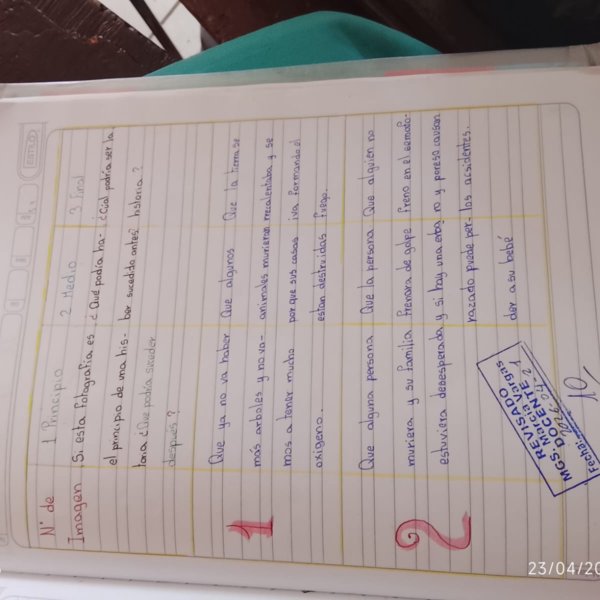 N° de Imagen
1 Principio
2 Medio
3 final
Si esta fotografía es
el principio de una his-
toria ¿Que podría suceder
después?
¿Qué podía ha-
ber sucedido antes?
¿Cúal podría ser la
historia?
1
Que ya no va haber
más arboles y no va-
mos a tener mucho
oxígeno.
Que algunos
animales murieron
porque sus casas
estan destruidas
Que la tierra se
recalentaba y se
iva formando el
fuego.
2
Que alguna persona
muriera y su familia
estuviera desesperada
Que la persona
frenara de golpe
y si hay una emba
razada puede per-
der a su bebé
Que alguien no
freno en el semafo-
ro y por eso causan
los accidentes.
REVISADO
MGS. Marcia Vargas
DOCENTE
Fecha:
10
23/04/20